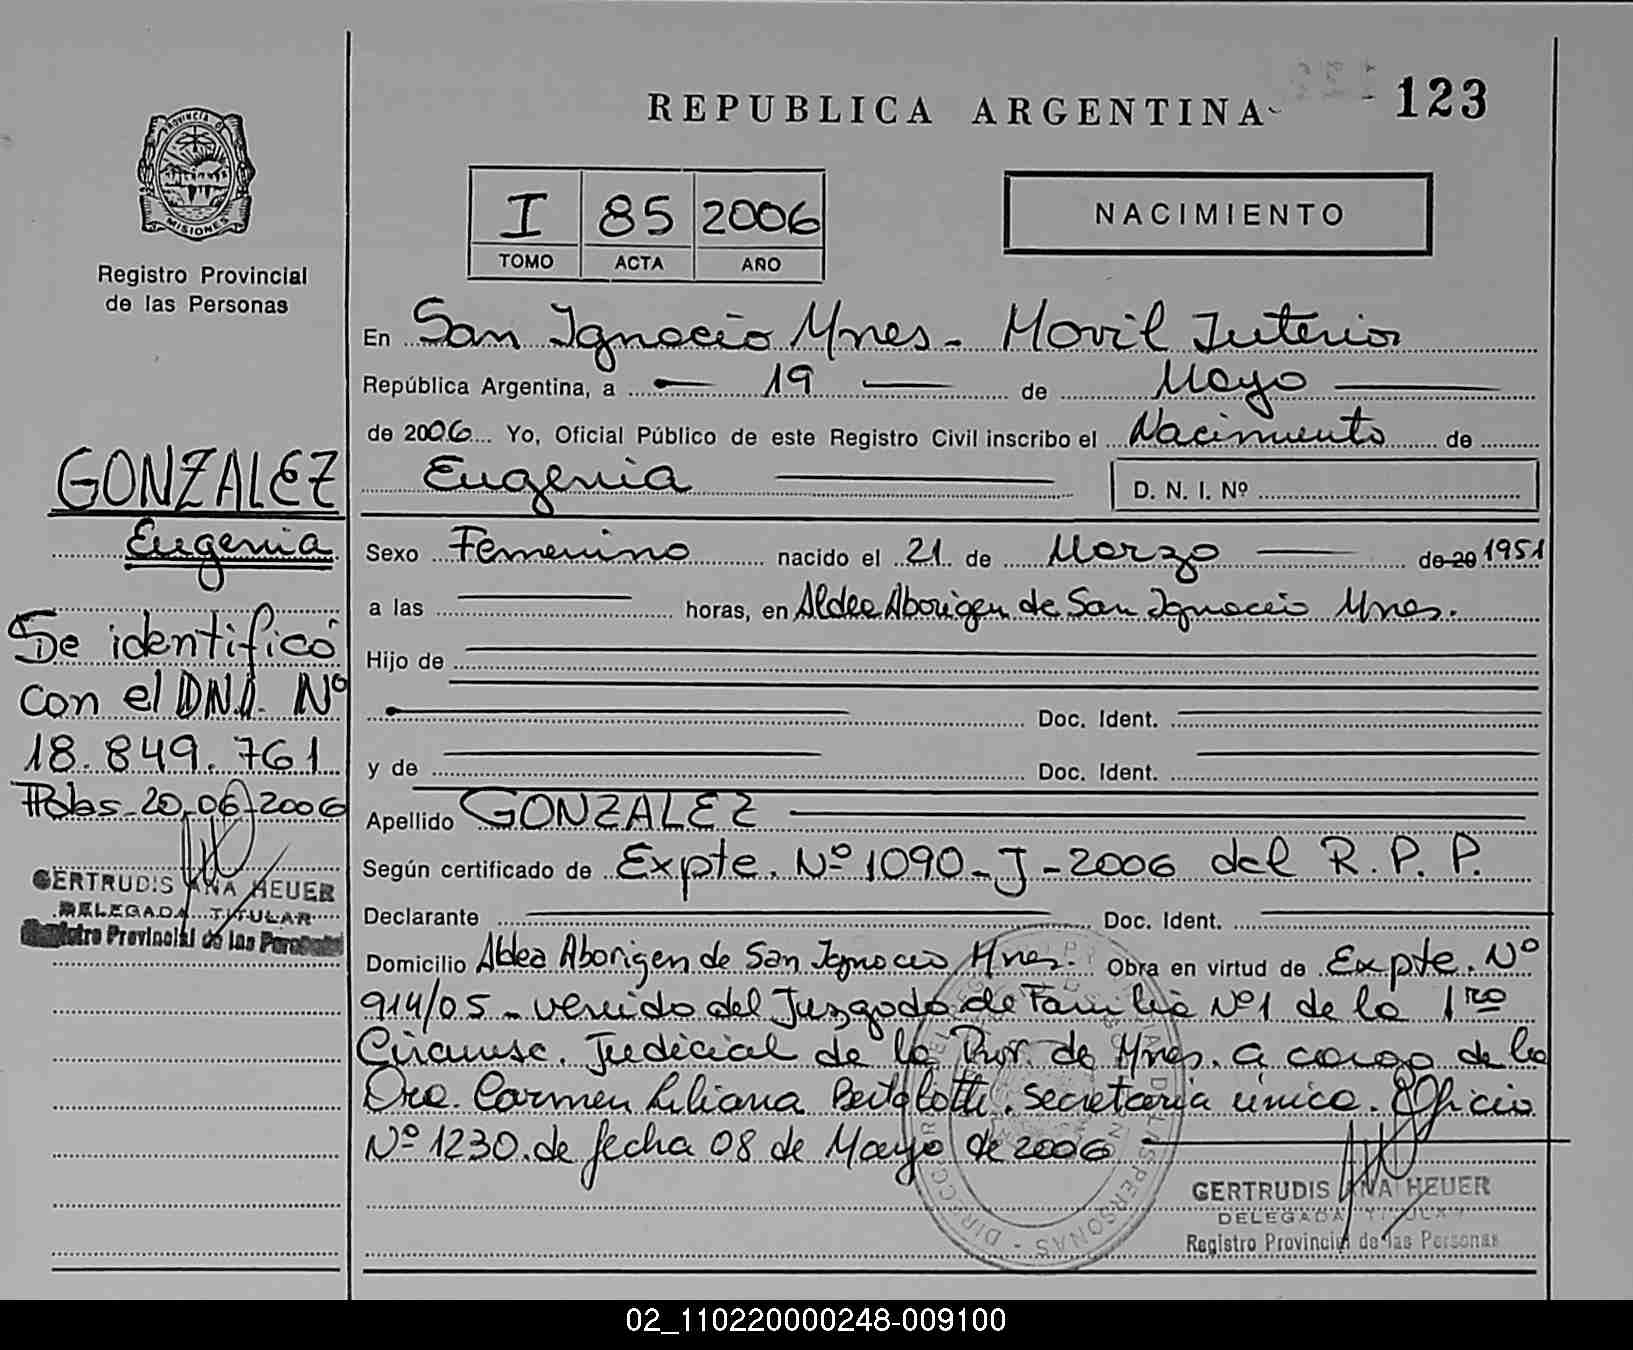 REPUBLICA ARGENTINA
123
PROVINCIA DE
MISIONES
Registro Provincial
de las Personas
I 85 2006
TOMO ACTA AÑO
NACIMIENTO
En San Ignacio Mnes - Movil Interior
República Argentina, a 19 de Mayo
de 2006 Yo, Oficial Público de este Registro Civil inscribo el Nacimiento de
Eugenia
D. N. I. Nº
Sexo Femenino nacido el 21 de Marzo de 20 1951
a las horas, en Aldea Aborigen de San Ignacio Mnes.
Hijo de
Doc. Ident.
y de Doc. Ident.
Apellido GONZALEZ
Según certificado de Expte. Nº 1090-J-2006 del R.P.P.
Declarante Doc. Ident.
Domicilio Aldea Aborigen de San Ignacio Mnes. Obra en virtud de Expte. Nº
914/05 - venido del Juzgado de Familia Nº1 de la 1ra
Circunsc. Judicial de la Prov. de Mnes. a cargo de la
Dra. Carmen Liliana Bertolotti. Secretaría única. Oficio
Nº 1230. de fecha 08 de Mayo de 2006
GERTRUDIS ANA HEUER
DELEGADA TITULAR
Registro Provincial de las Personas
GONZALEZ
Eugenia
Se identificó
con el DNI. Nº
18.849.761
Pdas-20-06-2006
GERTRUDIS ANA HEUER
DELEGADA TITULAR
Registro Provincial de las Personas
02_110220000248-009100